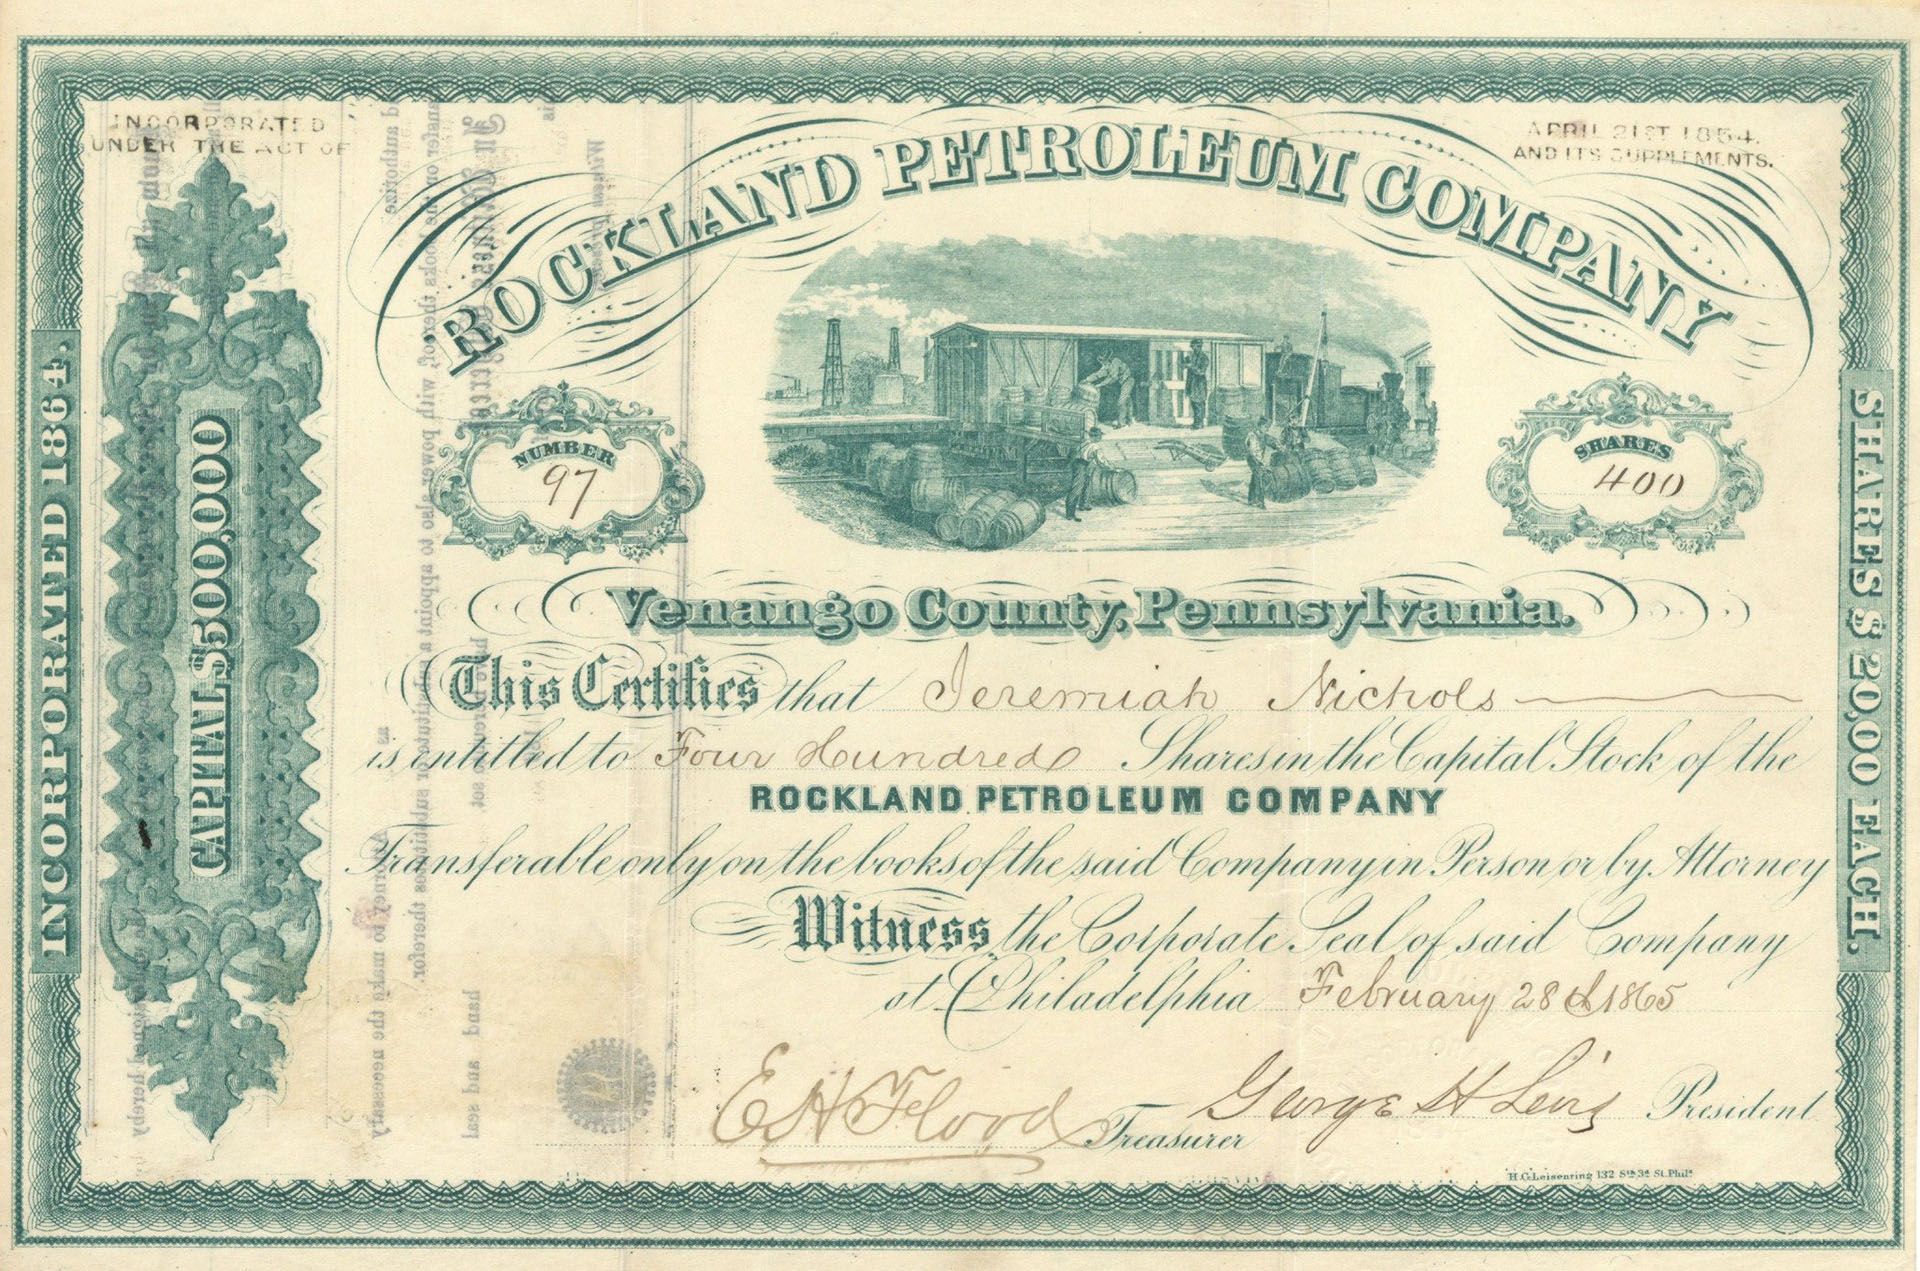 INCORPORATED
UNDER THE ACT OF
APRIL 21ST 1854.
AND ITS SUPPLEMENTS.
ROCKLAND PETROLEUM COMPANY
NUMBER
97
SHARES
400
INCORPORATED 1864.
CAPITAL $500,000
SHARES $ 20,00 EACH.
Venango County, Pennsylvania.
This Certifies that Jeremiah Nichols
is entitled to Four Hundred Shares in the Capital Stock of the
ROCKLAND PETROLEUM COMPANY
Transferable only on the books of the said Company in Person or by Attorney
Witness the Corporate Seal of said Company
at Philadelphia February 28 1865
E H Flood Treasurer
George H Levis President
H.G. Leisenring 132 Sth 3d St. Phila